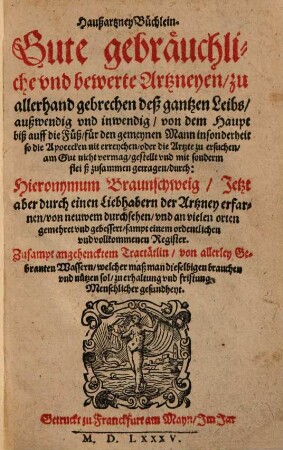 Haußartzney Büchlein.
Gute gebräuchli-
che vnd bewerte Artzneyen/zu
allerhand gebrechen deß gantzen Leibs/
außwendig vnd inwendig / von dem Haupt
biß auff die Füß/für den gemeynen Mann insonderheit
so die Apotecken nit erreychen/oder die Artzte zu ersuchen/
am Gut nicht vermag/gestellt vnd mit sonderm
fleiß zusammen getragen/durch:
Hieronymum Braunschweig / Jetzt
aber durch einen Liebhabern der Artzney erfar-
nen/von neuwem durchsehen/vnd an vielen orten
gemehret vnd gebessert/sampt einem ordentlichen
vnd vollkommenen Register.
Zusampt angehencktem Tractätlin / von allerley Ge-
branten Wassern/welcher maß man dieselbigen brauchen
vnd nützen sol/zu erhaltung vnd fristung
Menschlicher gesundheyt.
Getruckt zu Franckfurt am Mayn/Im Jar
M. D. LXXXV.